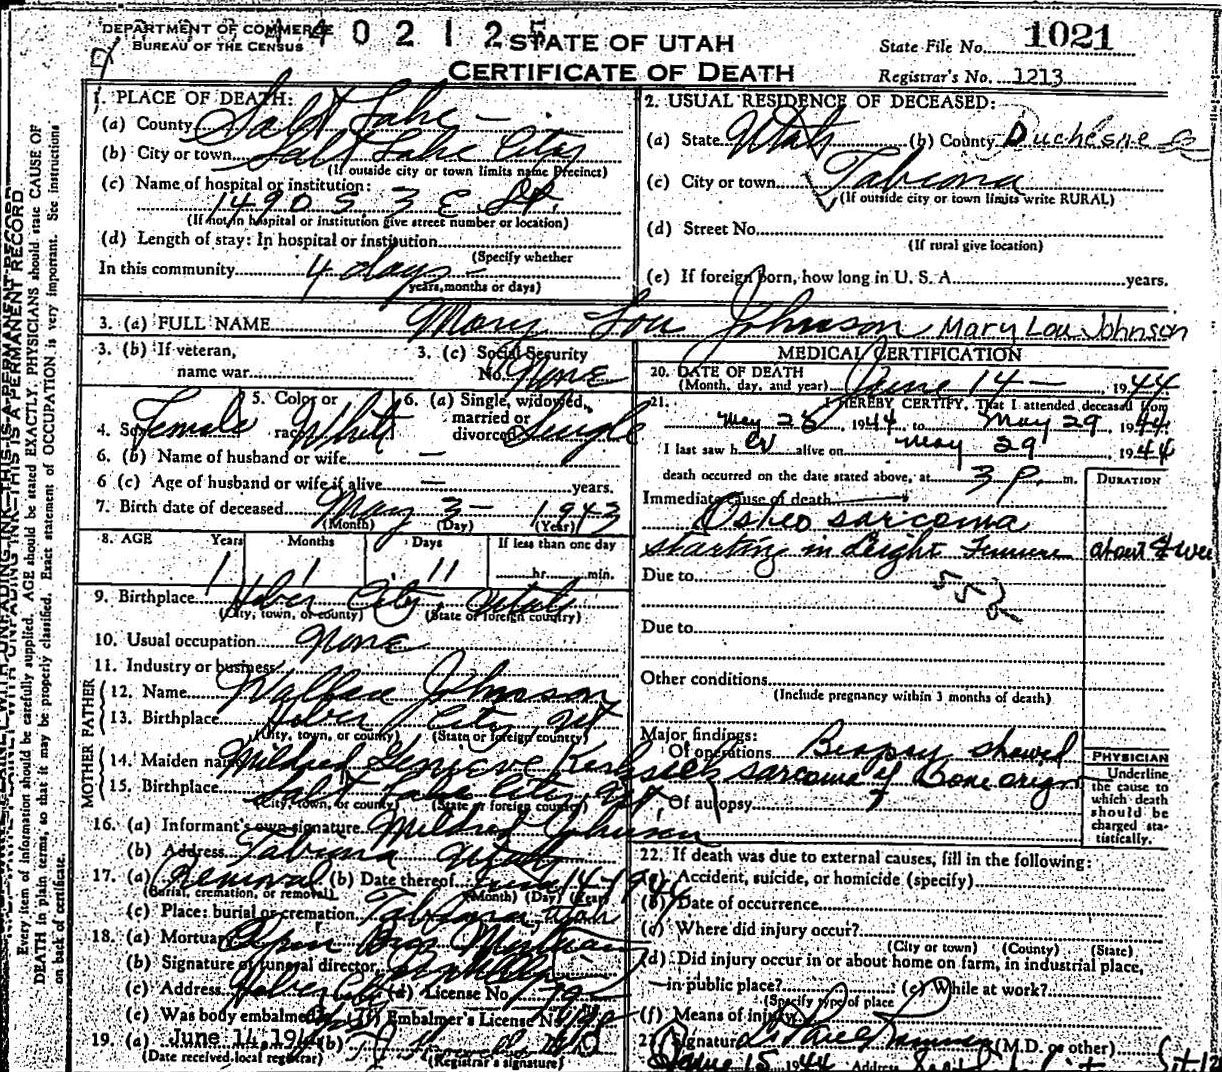 DEPARTMENT OF COMMERCE
BUREAU OF THE CENSUS
4 0 2 1 2
STATE OF UTAH
CERTIFICATE OF DEATH
State File No. 1021
Registrar's No. 1213
1. PLACE OF DEATH:
(a) County Salt Lake
(b) City or town Salt Lake City
(If outside city or town limits name Precinct)
(c) Name of hospital or institution:
1490 S 3 E St.
(If not in hospital or institution give street number or location)
(d) Length of stay: In hospital or institution
(Specify whether
In this community 4 days
years, months or days)
2. USUAL RESIDENCE OF DECEASED:
(a) State Utah (b) County Duchesne
(c) City or town Tabiona
(If outside city or town limits write RURAL)
(d) Street No.
(If rural give location)
(e) If foreign born, how long in U. S. A. years.
3. (a) FULL NAME Mary Lou Johnson Mary Lou Johnson
3. (b) If veteran,
name war
3. (c) Social Security
No. None
4. Sex Female 5. Color or race White 6. (a) Single, widowed, married or divorced Single
6. (b) Name of husband or wife —
6 (c) Age of husband or wife if alive — years.
7. Birth date of deceased May 3 - 1943
(Month) (Day) (Year)
8. AGE Years Months Days If less than one day
1 1 11 hr. min.
9. Birthplace Heber City, Utah
(City, town, or county) (State or foreign country)
10. Usual occupation None
11. Industry or business
FATHER
12. Name Johnson
13. Birthplace Heber City Ut
(City, town, or county) (State or foreign country)
MOTHER
14. Maiden name Mildred
15. Birthplace Salt Lake City, Ut
(City, town, or county) (State or foreign country)
16. (a) Informant's own signature Mildred Johnson
(b) Address Tabiona Utah
17. (a) Removal (b) Date thereof June 14 - 1944
(Burial, cremation, or removal) (Month) (Day) (Year)
(c) Place: burial or cremation Tabiona Utah
18. (a) Mortuary Bros
(b) Signature of funeral director
(c) Address Heber City (d) License No. 179
(e) Was body embalmed? (f) Embalmer's License No.
19. (a) June 14, 1944 (b)
(Date received local registrar) (Registrar's signature)
MEDICAL CERTIFICATION
20. DATE OF DEATH
(Month, day, and year) June 14 — 1944
21. I HEREBY CERTIFY, That I attended deceased from
May 28, 1944, to May 29, 1944
I last saw her alive on May 29 1944
death occurred on the date stated above, at 3 P. m.
DURATION
Immediate cause of death
Osteo sarcoma
starting in Femur about
Due to
Due to
Other conditions
(Include pregnancy within 3 months of death)
Major findings:
Of operations Biopsy showed
sarcoma of Bone origin
Of autopsy
PHYSICIAN
Underline
the cause to
which death
should be
charged sta-
tistically.
22. If death was due to external causes, fill in the following:
(a) Accident, suicide, or homicide (specify)
(b) Date of occurrence
(c) Where did injury occur?
(City or town) (County) (State)
(d) Did injury occur in or about home on farm, in industrial place,
in public place? (e) While at work?
(Specify type of place
(f) Means of injury
23. Signature (M.D. or other)
June 15, 1944 Address
Every item of information should be carefully supplied. AGE should be stated EXACTLY. PHYSICIANS should state CAUSE OF
DEATH in plain terms, so that it may be properly classified. Exact statement of OCCUPATION is very important. See instructions
on back of certificate.